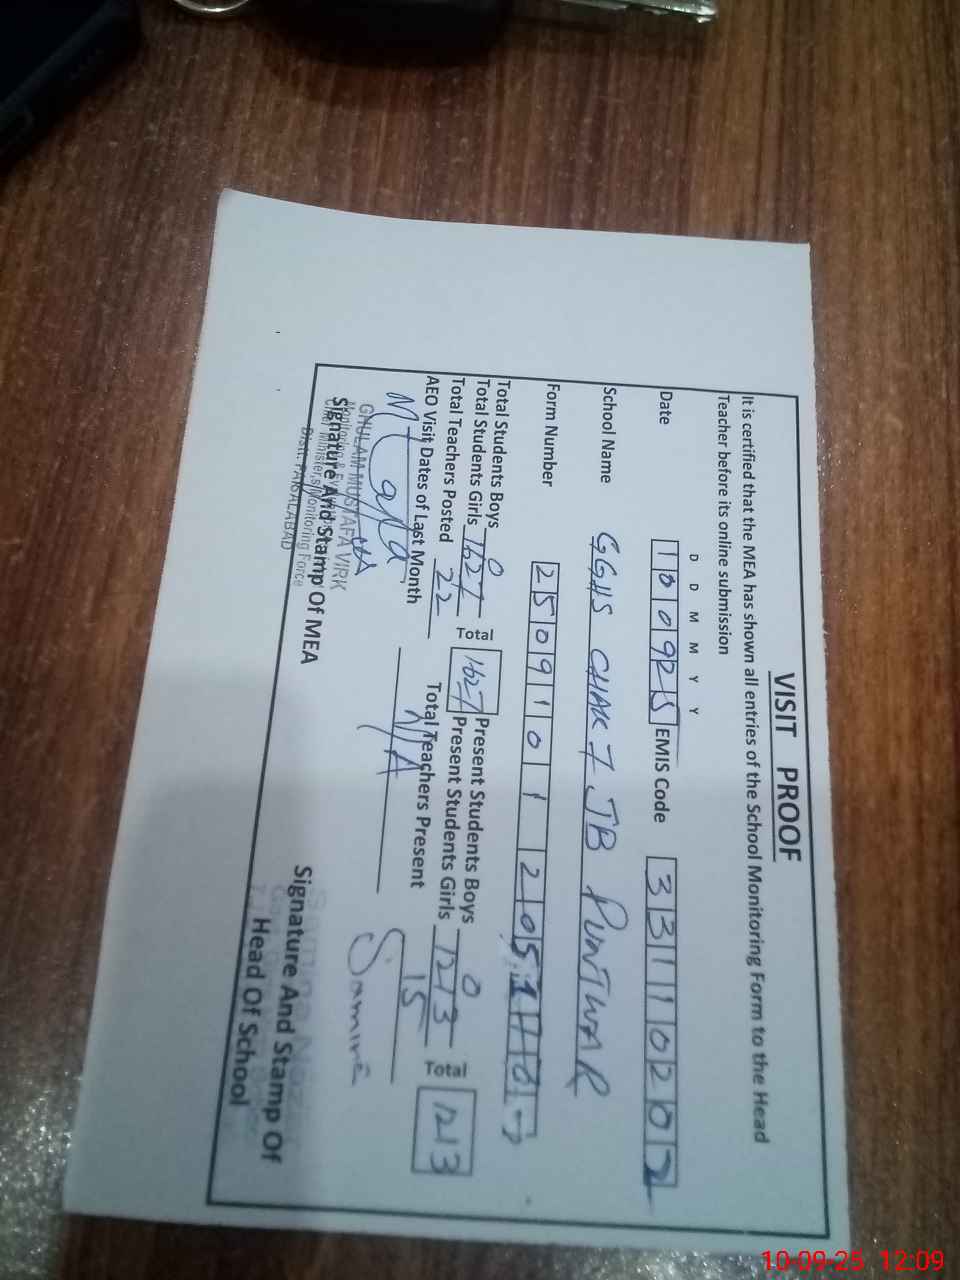 VISIT PROOF
It is certified that the MEA has shown all entries of the School Monitoring Form to the Head
Teacher before its online submission
D D M M Y Y
Date 100925 EMIS Code 33110202
School Name GGHS CHAK 7 JB PUNJWAR
Form Number 2509101205
Total Students Boys 0 Present Students Boys 0
Total Students Girls 1627 Total 1627 Present Students Girls 1213 Total 1213
Total Teachers Posted 22 Total Teachers Present 15
AEO Visit Dates of Last Month N/A
Samina
GHULAM MUSTAFA VIRK
Monitoring &
Chief Minister,s Monitoring Force
Distt. FAISALABAD
Signature And Stamp Of MEA
Signature And Stamp Of
Head Of School
10-09-25 12:09